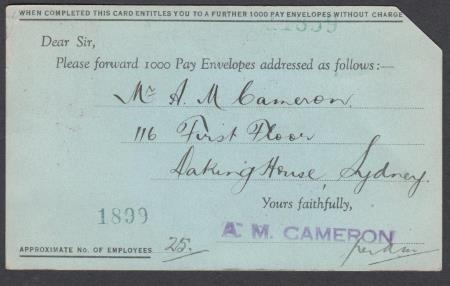 WHEN COMPLETED THIS CARD ENTITLES YOU TO A FURTHER 1000 PAY ENVELOPES WITHOUT CHARGE
1899
Dear Sir,
Please forward 1000 Pay Envelopes addressed as follows:—
Mr A. M Cameron.
116 First Floor
Daking House, Sydney.
Yours faithfully,
1899
A. M. CAMERON
APPROXIMATE NO. OF EMPLOYEES 25.